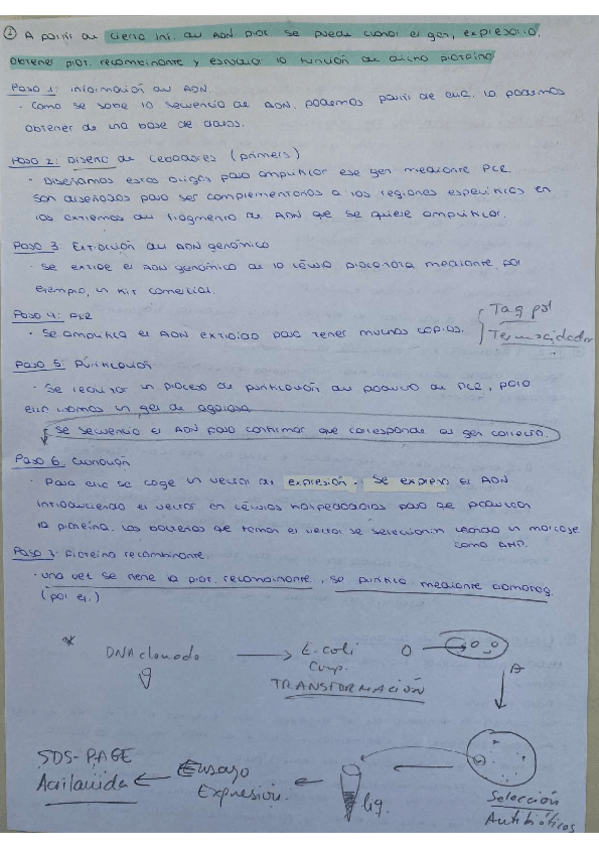 ① A partir de cierta inf. del ADN prot se puede clonar el gen, expresarlo,
obtener prot. recombinante y estudiar la función de dicha proteína
Paso 1: información del ADN.
· Como se sabe la secuencia de ADN, podemos partir de ella. La podemos
obtener de una base de datos.
Paso 2: Diseño de cebadores (primers)
· Diseñamos estos oligos para amplificar ese gen mediante PCR
son diseñados para ser complementarios a las regiones específicas en
los extremos del fragmento de ADN que se quiere amplificar.
Paso 3: Extracción del ADN genómico
· Se extrae el ADN genómico de la célula procariota mediante, por
ejemplo, un kit comercial.
Paso 4: PCR
· Se amplifica el ADN extraído para tener muchas copias.
Taq pol
Termociclador
Paso 5: Purificación
· Se realiza un proceso de purificación del producto de PCR, para
ello usamos un gel de agarosa
Se secuencia el ADN para confirmar que corresponde al gen correcto.
Paso 6: Clonación
· Para ello se coge un vector de expresión. Se expresa el ADN
introduciendo el vector en células hospedadoras para que produzcan
la proteína. Las bacterias que toman el vector se seleccionan usando un marcador
como AMP.
Paso 7: Proteína recombinante.
· una vez se tiene la prot. recombinante, se purifica mediante cromatog.
(por ej.)
* DNA clonado → E. coli
Comp.
TRANSFORMACIÓN
Selección
Antibióticos
liq.
Ensayo
Expresión.
SDS-PAGE
Acrilamida